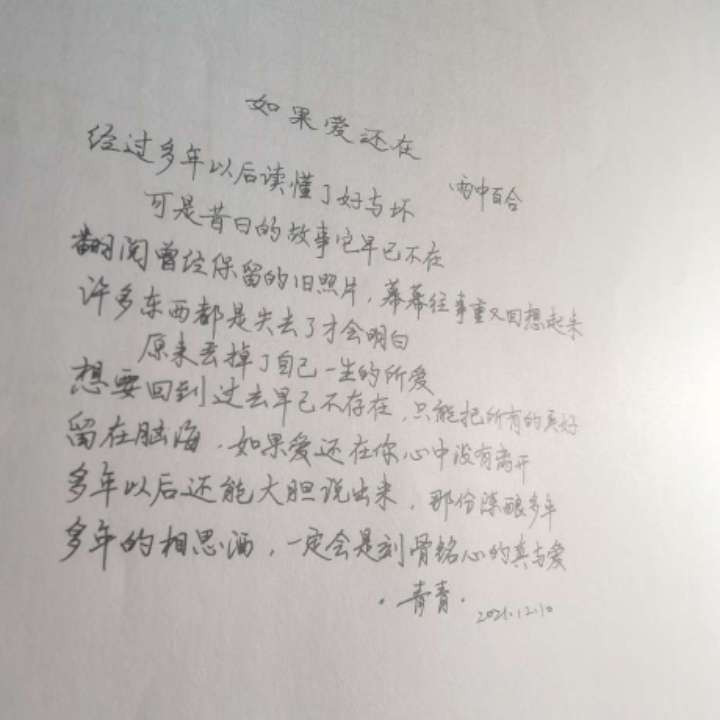 如果爱还在
经过多年以后读懂了好与坏
雪中百合
可是昔日的故事它早已不在
翻阅曾经保留的旧照片，幕幕往事重又回想起来
许多东西都是失去了才会明白
原来丢掉了自己一生的所爱
想要回到过去早已不存在，只能把所有的美好
留在脑海，如果爱还在你心中没有离开
多年以后还能大胆说出来，那份深酿多年
多年的相思酒，一定会是刻骨铭心的真与爱
·青青·
2021.12.10